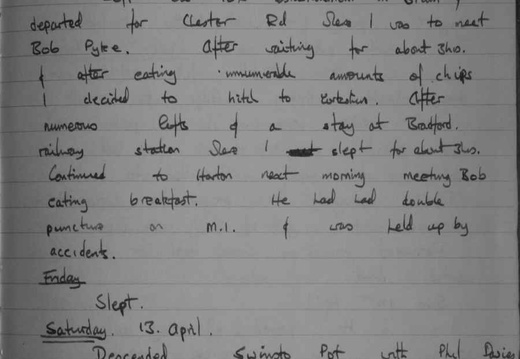 departed for Chester Rd Serv I was to meet
Bob Pyke. After waiting for about 3hrs.
& after eating innumerable amounts of chips
I decided to hitch to Yorkshire. After
numerous lifts & a stay at Bradford.
railway station Serv I slept for about 3hrs.
Continued to Horton next morning meeting Bob
eating breakfast. He had had double
puncture on M.1. & was held up by
accidents.
Friday
Slept.
Saturday. 13. April.
Descended Swinsto Pot with Phil Davies